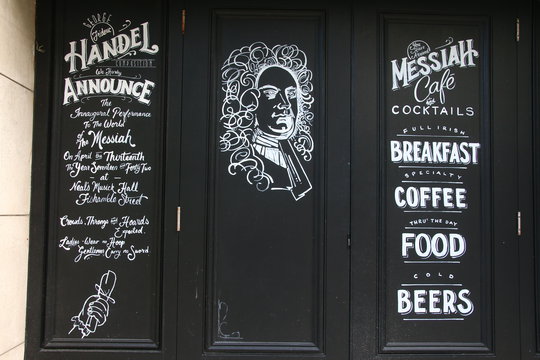 GEORGE
Frideric
HANDEL
COMPOSITION
We Hereby
ANNOUNCE
The
Innaugural Performance
To The World
of The Messiah
On April the Thirteenth
The Year Seventeen and Forty Two
- at -
Neal's Musick Hall
Fishamble Street
Crowds, Throngs and Hoards
Expected.
Ladies Wear no Hoop
Gentlemen Carry no Sword
MESSIAH
Café
COCKTAILS
FULL IRISH
BREAKFAST
SPECIALTY
COFFEE
THRU' THE DAY
FOOD
COLD
BEERS